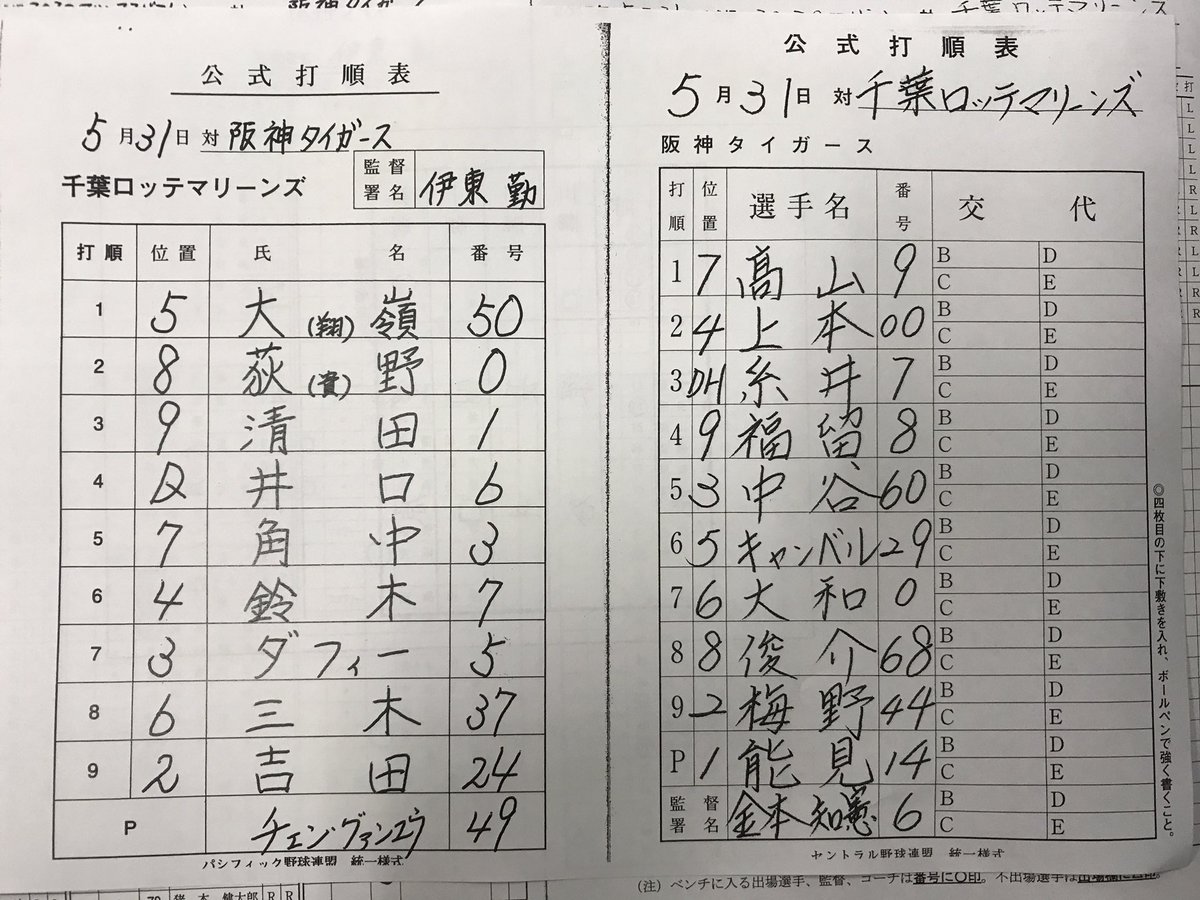 阪神タイガース
千葉ロッテマリーンズ
公式打順表
5月31日 対 阪神タイガース
千葉ロッテマリーンズ
監督署名 伊東 勤
打順 位置 氏名 番号
1 5 大(翔)嶺 50
2 8 荻(貴)野 0
3 9 清田 1
4 D 井口 6
5 7 角中 3
6 4 鈴木 7
7 3 ダフィー 5
8 6 三木 37
9 2 吉田 24
P チェン・グァンユウ 49
パシフィック野球連盟 統一様式
公式打順表
5月31日 対 千葉ロッテマリーンズ
阪神タイガース
打順 位置 選手名 番号 交代
1 7 髙山 9 B D
C E
2 4 上本 00 B D
C E
3 DH 糸井 7 B D
C E
4 9 福留 8 B D
C E
5 3 中谷 60 B D
C E
6 5 キャンベル 29 B D
C E
7 6 大和 0 B D
C E
8 8 俊介 68 B D
C E
9 2 梅野 44 B D
C E
P 1 能見 14 B D
C E
監督署名 金本知憲 6 B D
C E
◎四枚目の下に下敷きを入れ、ボールペンで強く書くこと。
セントラル野球連盟 統一様式
(注) ベンチに入る出場選手、監督、コーチは番号に○印。不出場選手は出場欄に
健太郎 R R